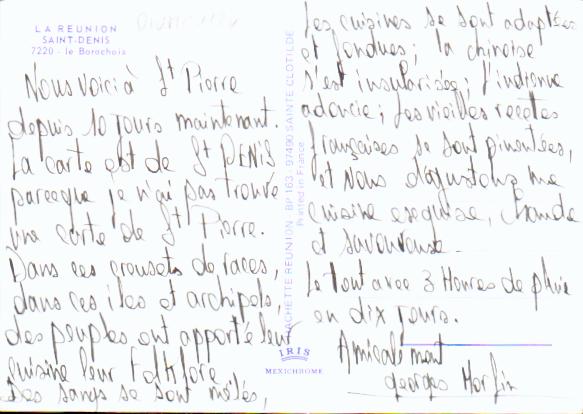 LA REUNION
SAINT-DENIS
7220 - le Barachois
Nous voici à St Pierre
depuis 10 Jours maintenant.
La carte est de St DENIS
parceque je n'ai pas trouvé
une carte de St Pierre.
Dans ces creusets de races,
dans ces iles et archipels,
des peuples ont apporté leur
cuisine leur Folklore
Les sangs se sont mêlés,
HACHETTE REUNION - BP 163 - 97490 SAINTE CLOTILDE
Printed in France
IRIS
MEXICHROME
Les cuisines se sont adaptées
et fondues; la chinoise
s'est insularisée; l'indienne
adoucie; les vieilles recettes
françaises se sont pimentées,
et Nous dégustons une
cuisine exquise, chaude
et savoureuse.
Le tout avec 3 Heures de pluie
en dix Jours.
Amicalement
georges